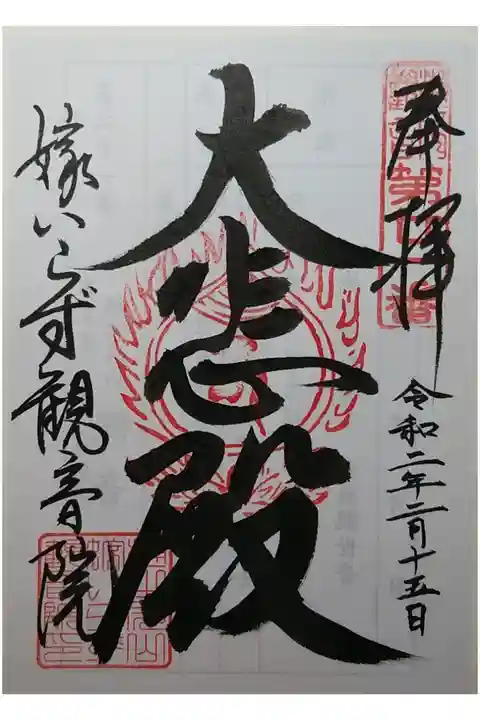 奉拝
令和二年二月十五日
大悲殿
嫁いらず観音院